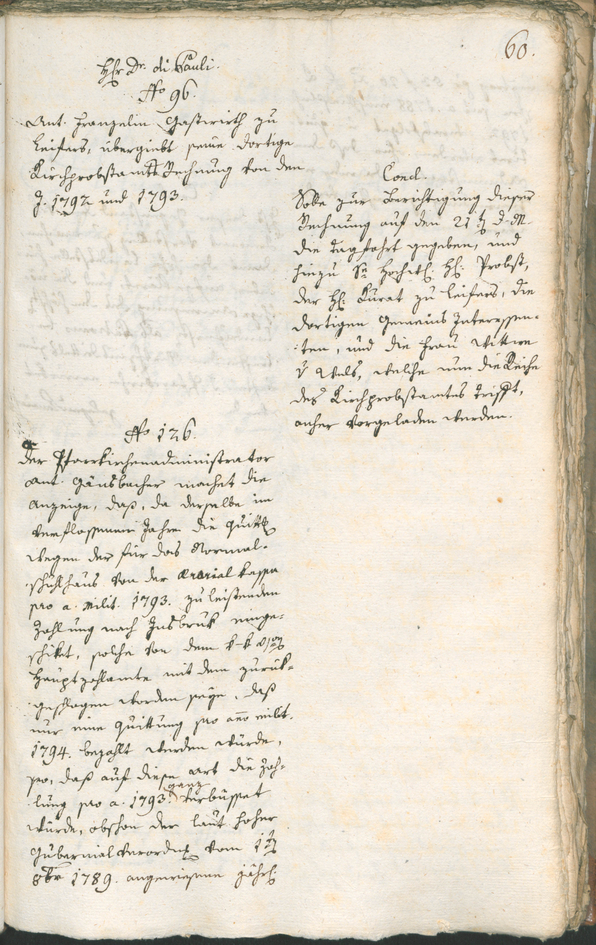 60.
H: Dr. di Pauli.
No 96.
Ant. Franzelin Gastwirth zu
Leifers, übergiebt seine dortige
Kirchprobstamts Rechnung von den
J. 1792 und 1793.
Concl.
Solle zur Berichtigung dieser
Rechnung auf den 21t d. M.
die Tagfahrt gegeben, und
hinzu Se Hochw: H: Probst,
der H: Kurat zu Leifers, die
dortigen Gemeins Interessen-
ten, und die Frau Wittwe
v Wels, welche nun die Reihe
des Kirchprobstamtes trifft,
anher vorgeladen werden.
No 126.
Der Pfarrkirchenadministrator
Ant. Gänsbacher machet die
Anzeige, daß, da derselbe im
verflossenen Jahre die Quitt:
wegen der für das Normal-
schulhaus von der Ararial kassa
pro a. milit. 1793. zu leistenden
Zahlung nach Insbruk einge-
schiket, solche von dem k-k
Hauptzahlamte mit dem zurük-
geschlagen worden seye, daß
nur eine Quittung pro año milit.
1794. bezahlt werden würde,
so, daß auf diese Art die Zah-
lung pro a. 1793. ganz verbüsset
würde, obschon der laut hoher
Gubernial Verordng vom 1t
8br 1789. angewiesene jährl: